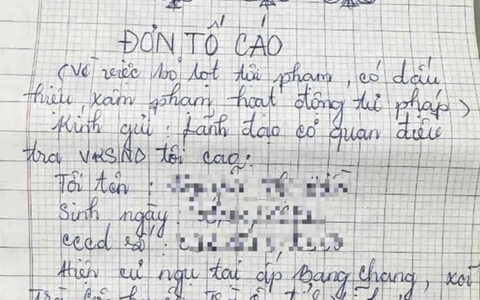 ĐƠN TỐ CÁO
(Về việc bỏ lọt tội phạm, có dấu
hiệu, xâm phạm hoạt động tư pháp)
Kính gửi: Lãnh đạo cơ quan điều
tra VKSND tối cao:
Tôi tên :
Sinh ngày :
cccd số :
Hiện cư ngụ tại ấp Bang chang, xã